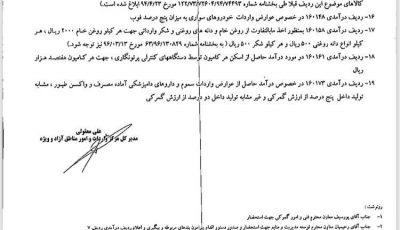 کالاهای موضوع این ردیف قبلا طی بخشنامه شماره ۱۲۲/۷۳/۷۲۶۰۶/۹۴/۷۴۴۹۳ مورخ ۹۴/۶/۲۳ ابلاغ شده است.)
۱۶- ردیف درآمدی ۱۶۰۱۴۸ در خصوص عوارض واردات خودروهای سواری به میزان پنج درصد فوب
۱۷- ردیف درآمدی ۱۶۰۱۵۸ بمنظور اخذ مابالتفاوت از روغن خام ، دانه های روغنی و شکر وارداتی جهت هر کیلو روغن خام ۲۰۰۰ ریال ، هر
کیلو انواع دانه روغنی ۵۰۰ ریال و هر کیلو شکر ۵۰۰ ریال ( به بخشنامه شماره ۶۳/۹۶/۱۳۰۸۲۹ مورخ ۹۶/۰۲/۱۳ نیز توجه شود).
۱۸- ردیف درآمدی ۱۶۰۱۶۱ در مورد درآمد حاصل از اسکن هر کامیون توسط دستگاههای کنترلی پرتونگاری ، جهت هر کامیون مفتصد هزار
ریال
۱۹- ردیف درآمدی ۱۶۰۱۷۳ در خصوص درآمد حاصل از عوارض واردات سموم و داروهای دامپزشکی آماده مصرف و واکسن طیور ، مشابه
تولید داخل پنج درصد از ارزش گمرکی و غیر مشابه تولید داخل دو درصد از ارزش گمرکی
علی معقولی
مدیر کل مرکز واردات و امور مناطق آزاد و ویژه
رونوشت :
۱- جناب آقای پورسیف معاون محترم فنی و امور گمرکی جهت استحضار
۲- جناب آقای رحیمیان معاون محترم توسعه مدیریت و منابع جهت استحضار و صدور دستور اقدام پیرامون بندهای مربوطه و پیگیری و اعلام ردیف درآمدی ردیف ۷